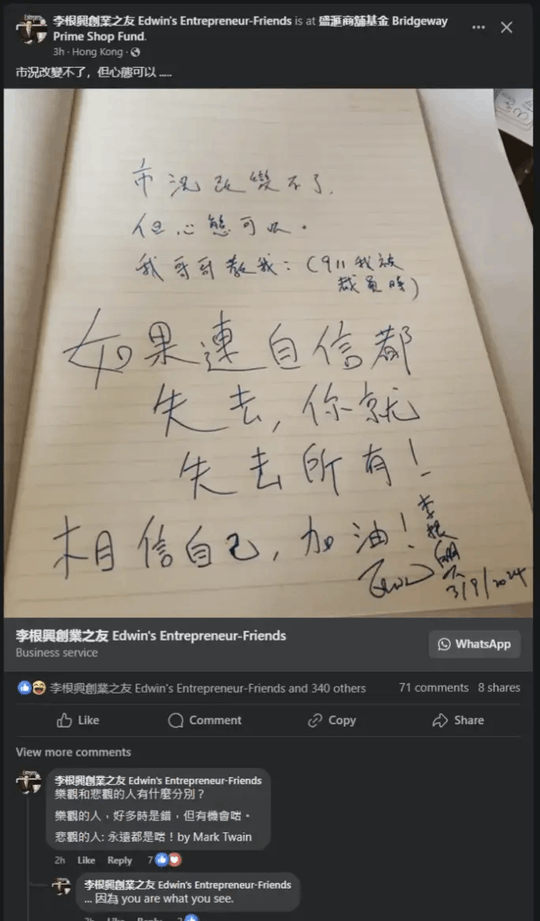 李根興創業之友 Edwin's Entrepreneur-Friends is at 盛滙商舖基金 Bridgeway
Prime Shop Fund.
3h · Hong Kong ·
市況改變不了，但心態可以 .....
市況改變不了，
但心態可以。
我哥哥教我：(911我被
裁員時)
如果連自信都
失去，你就
失去所有！
相信自己，加油！
李根興
Edwin
3/9/2024
李根興創業之友 Edwin's Entrepreneur-Friends
Business service
WhatsApp
李根興創業之友 Edwin's Entrepreneur-Friends and 340 others
71 comments 8 shares
Like Comment Copy Share
View more comments
李根興創業之友 Edwin's Entrepreneur-Friends
樂觀和悲觀的人有什麼分別？
樂觀的人，好多時是錯，但有機會啱。
悲觀的人: 永遠都是啱！by Mark Twain
2h Like Reply 7
李根興創業之友 Edwin's Entrepreneur-Friends
... 因為 you are what you see.
2h Like Reply 2